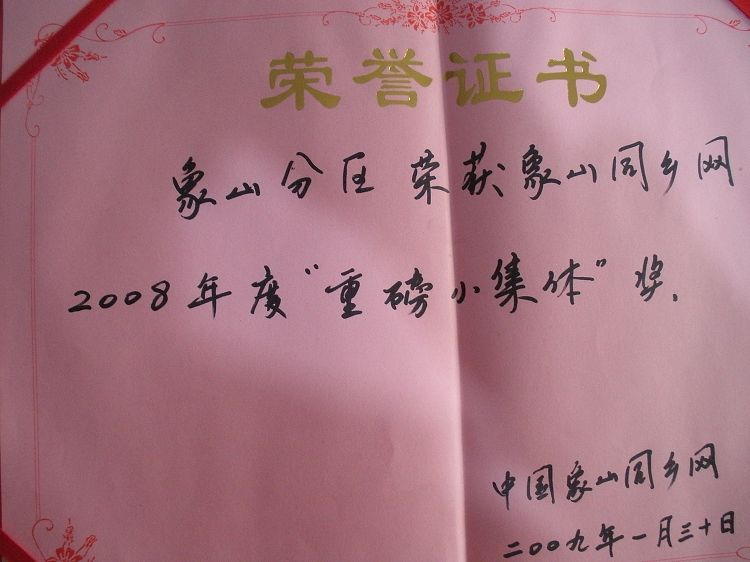 荣誉证书
象山分区荣获象山同乡网
2008年度“重磅小集体”奖.
中国象山同乡网
二00九年一月三十日